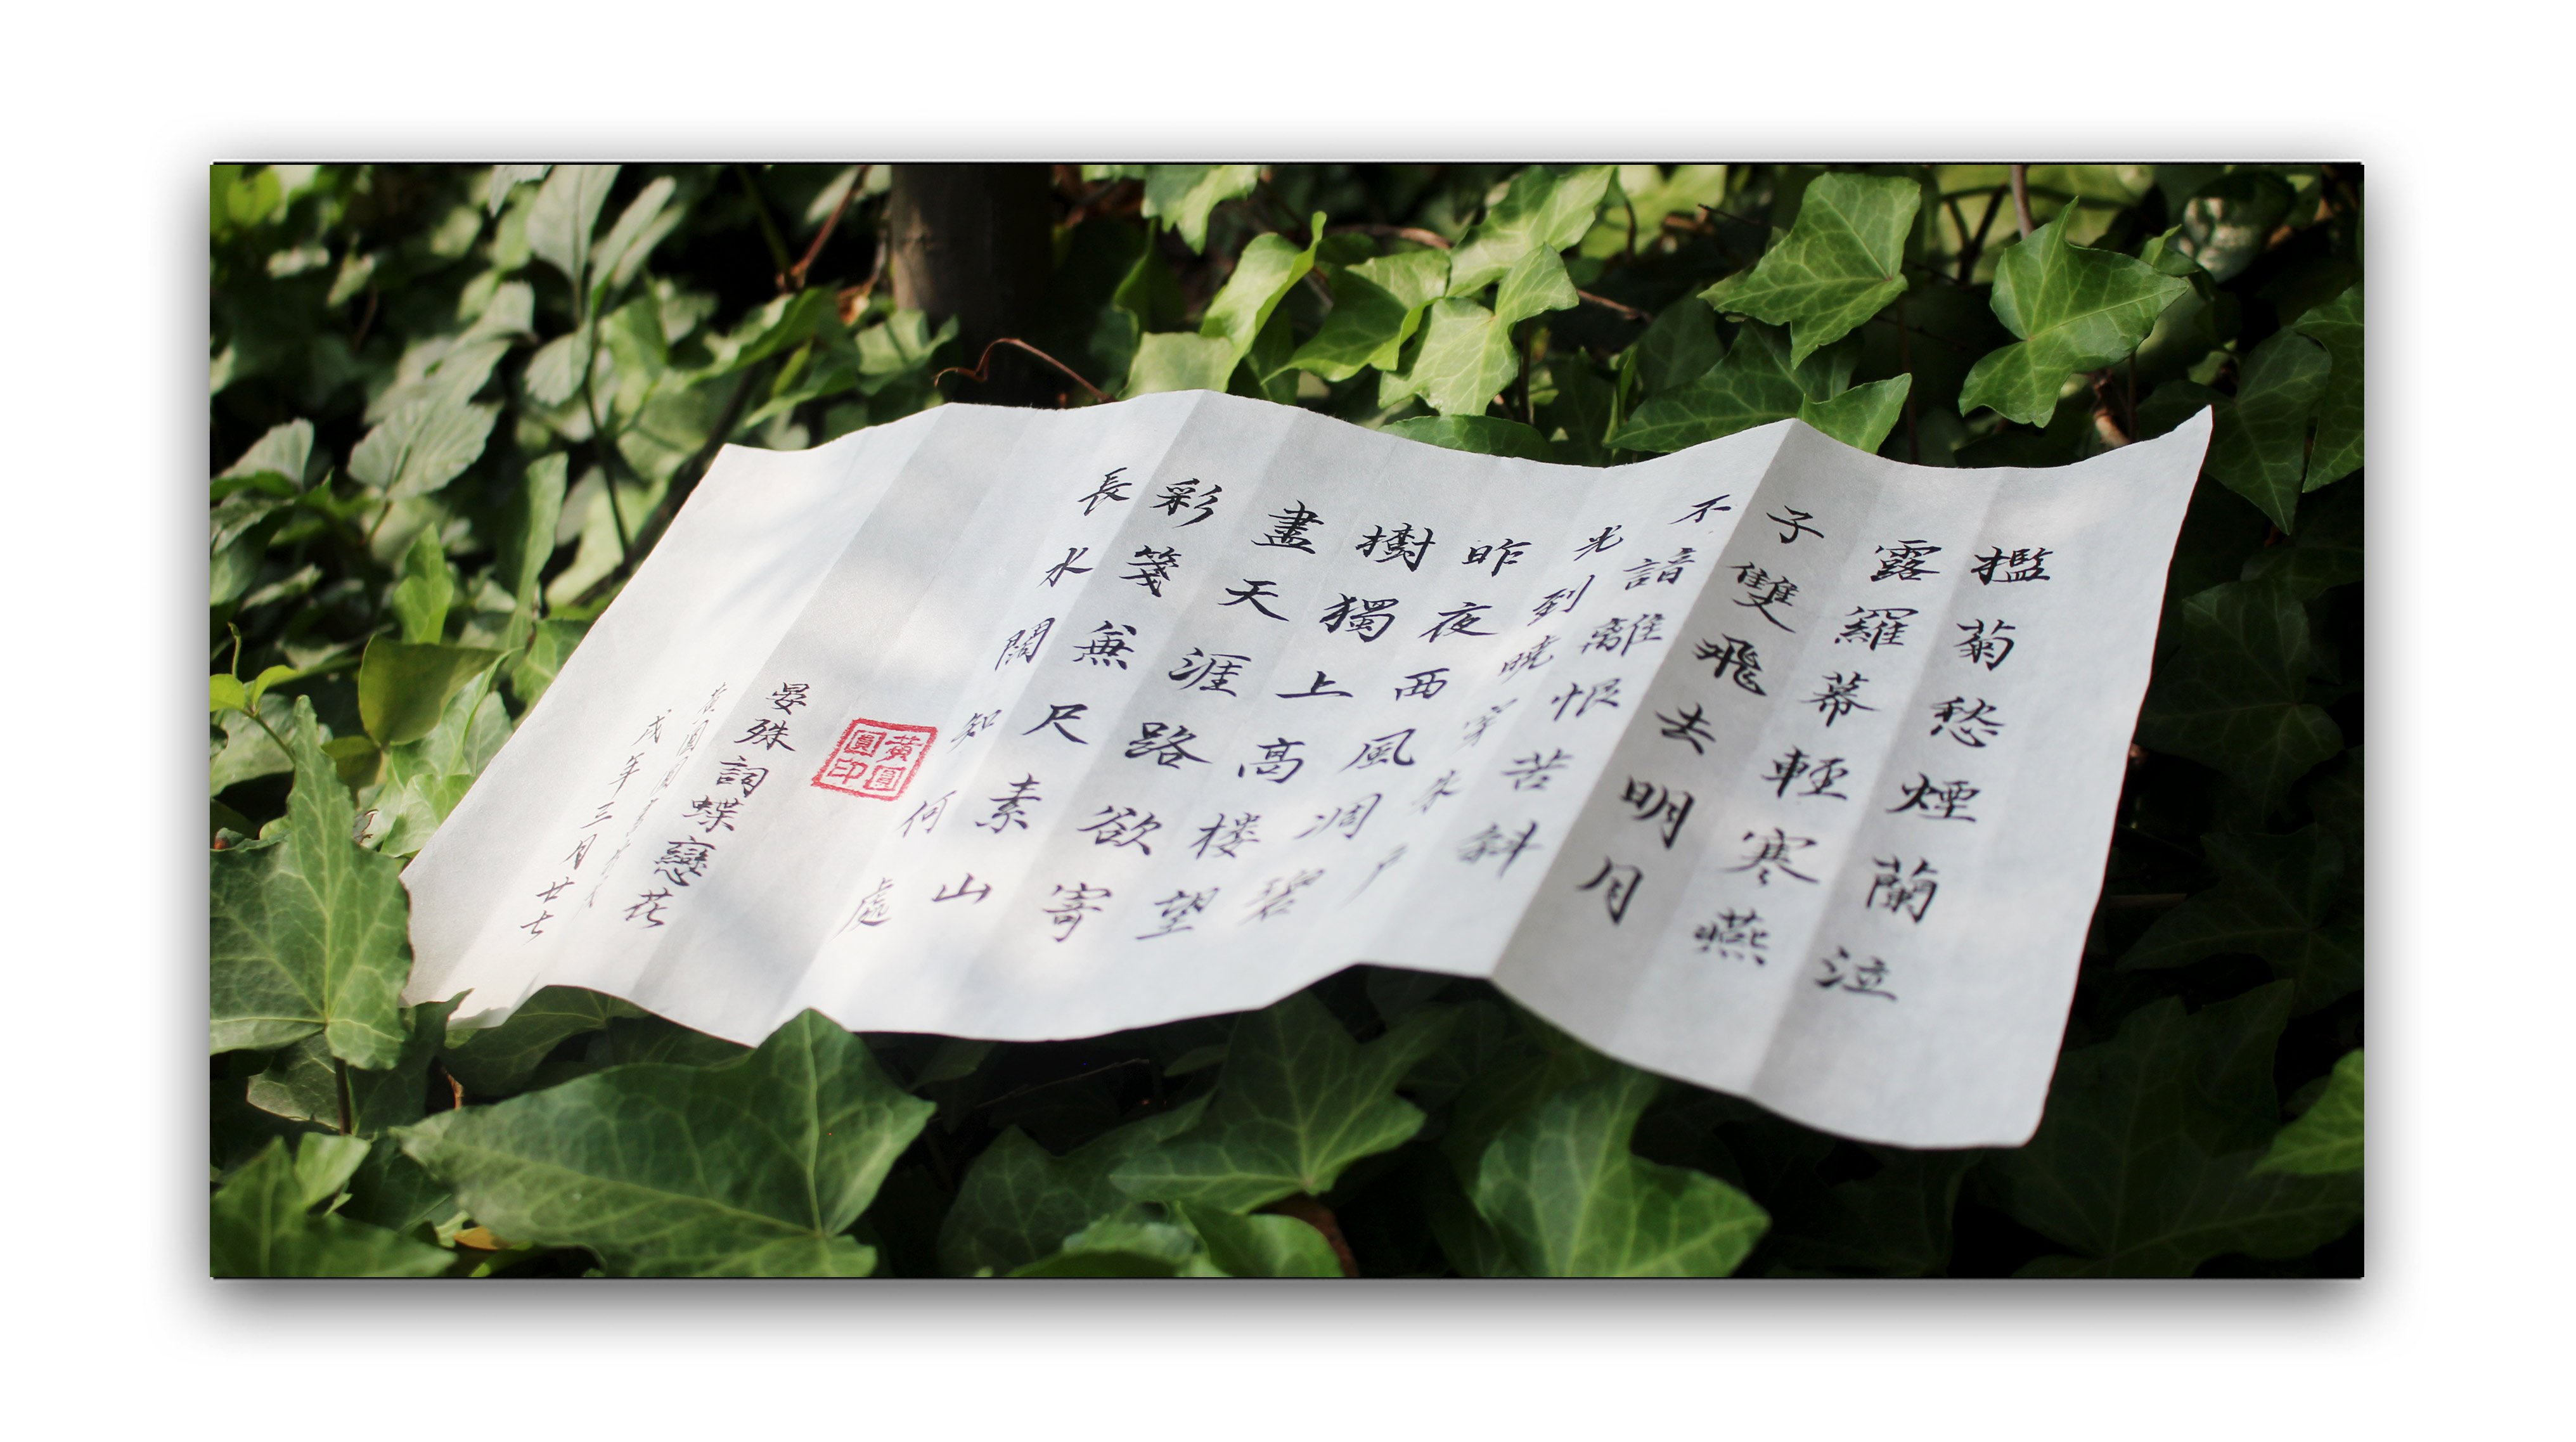 檻菊愁煙蘭泣
露羅幕輕寒燕
子雙飛去明月
不諳離恨苦斜
光到曉穿朱户
昨夜西風凋碧
樹獨上高楼望
盡天涯路欲寄
彩箋無尺素山
長水闊知何處
黃圓圓印
晏殊詞蝶戀花
戌年三月廿七